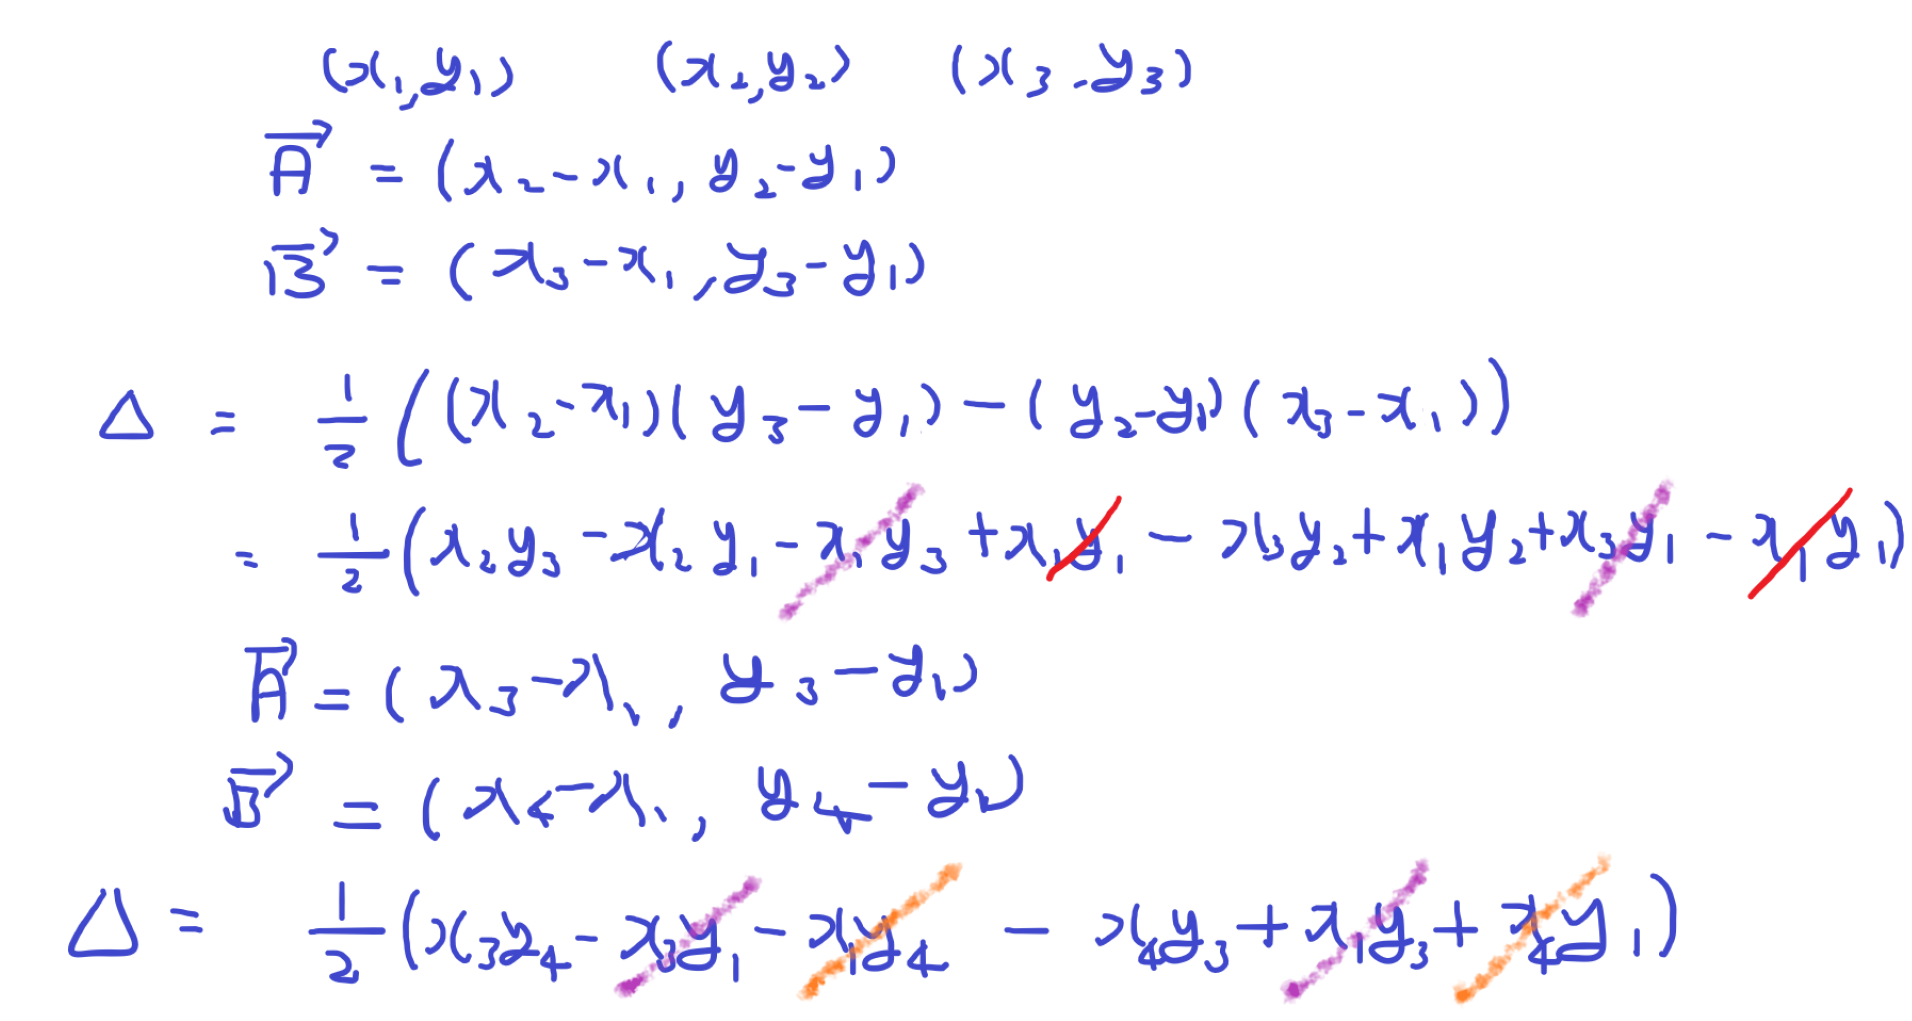 (x₁,y₁) (x₂,y₂) (x₃,y₃)
A⃗ = (x₂-x₁, y₂-y₁)
B⃗ = (x₃-x₁, y₃-y₁)
△ = 1/2 ((x₂-x₁)(y₃-y₁)-(y₂-y₁)(x₃-x₁))
= 1/2 (x₂y₃-x₂y₁-x₁y₃+x₁y₁-x₃y₂+x₁y₂+x₃y₁-x₁y₁)
A⃗ = (x₃-x₁, y₃-y₁)
B⃗ = (x₄-x₁, y₄-y₁)
△ = 1/2 (x₃y₄-x₃y₁-x₁y₄-x₄y₃+x₁y₃+x₄y₁)